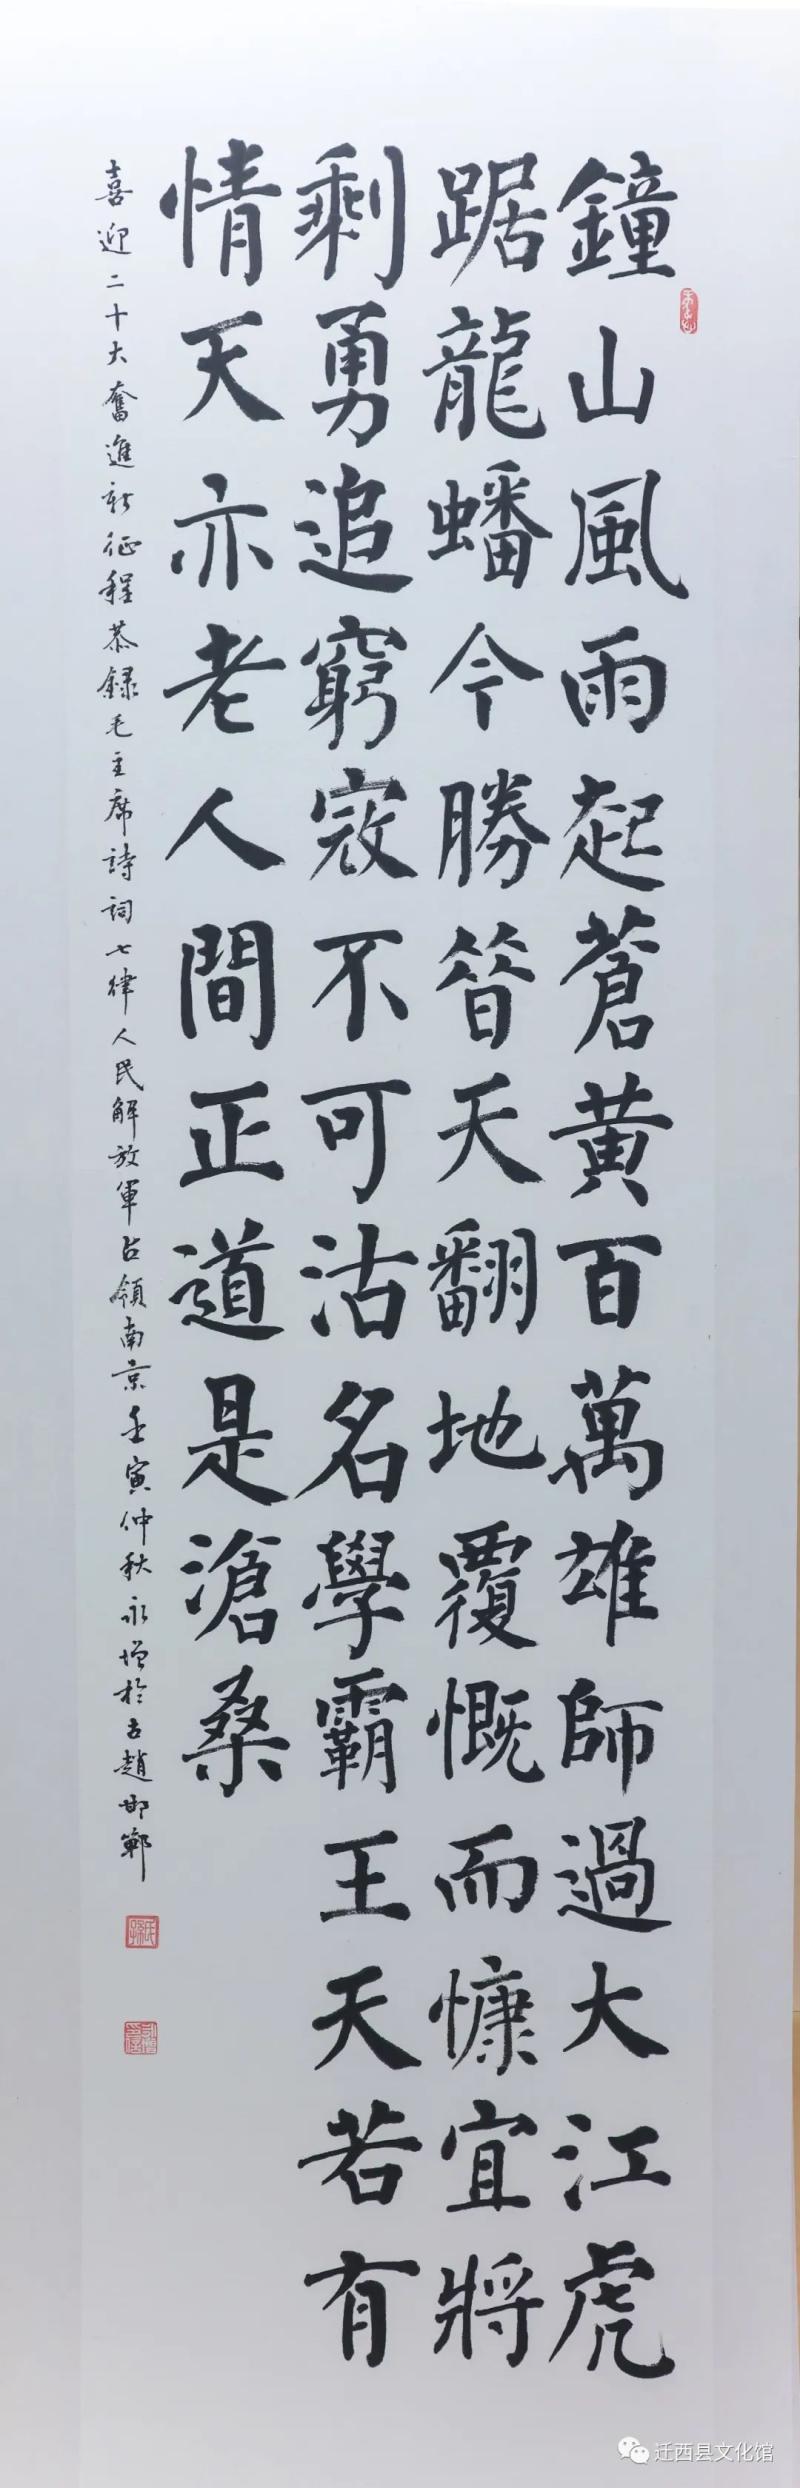 鐘山風雨起蒼黄百萬雄師過大江虎
踞龍蟠今勝昝天翻地覆慨而慷宜將
剩勇追窮寇不可沽名學霸王天若有
情天亦老人間正道是滄桑
喜迎二十大奮進新征程恭録毛主席詩詞七律人民解放軍占領南京壬寅仲秋永增於古趙邯鄲
迁西县文化馆